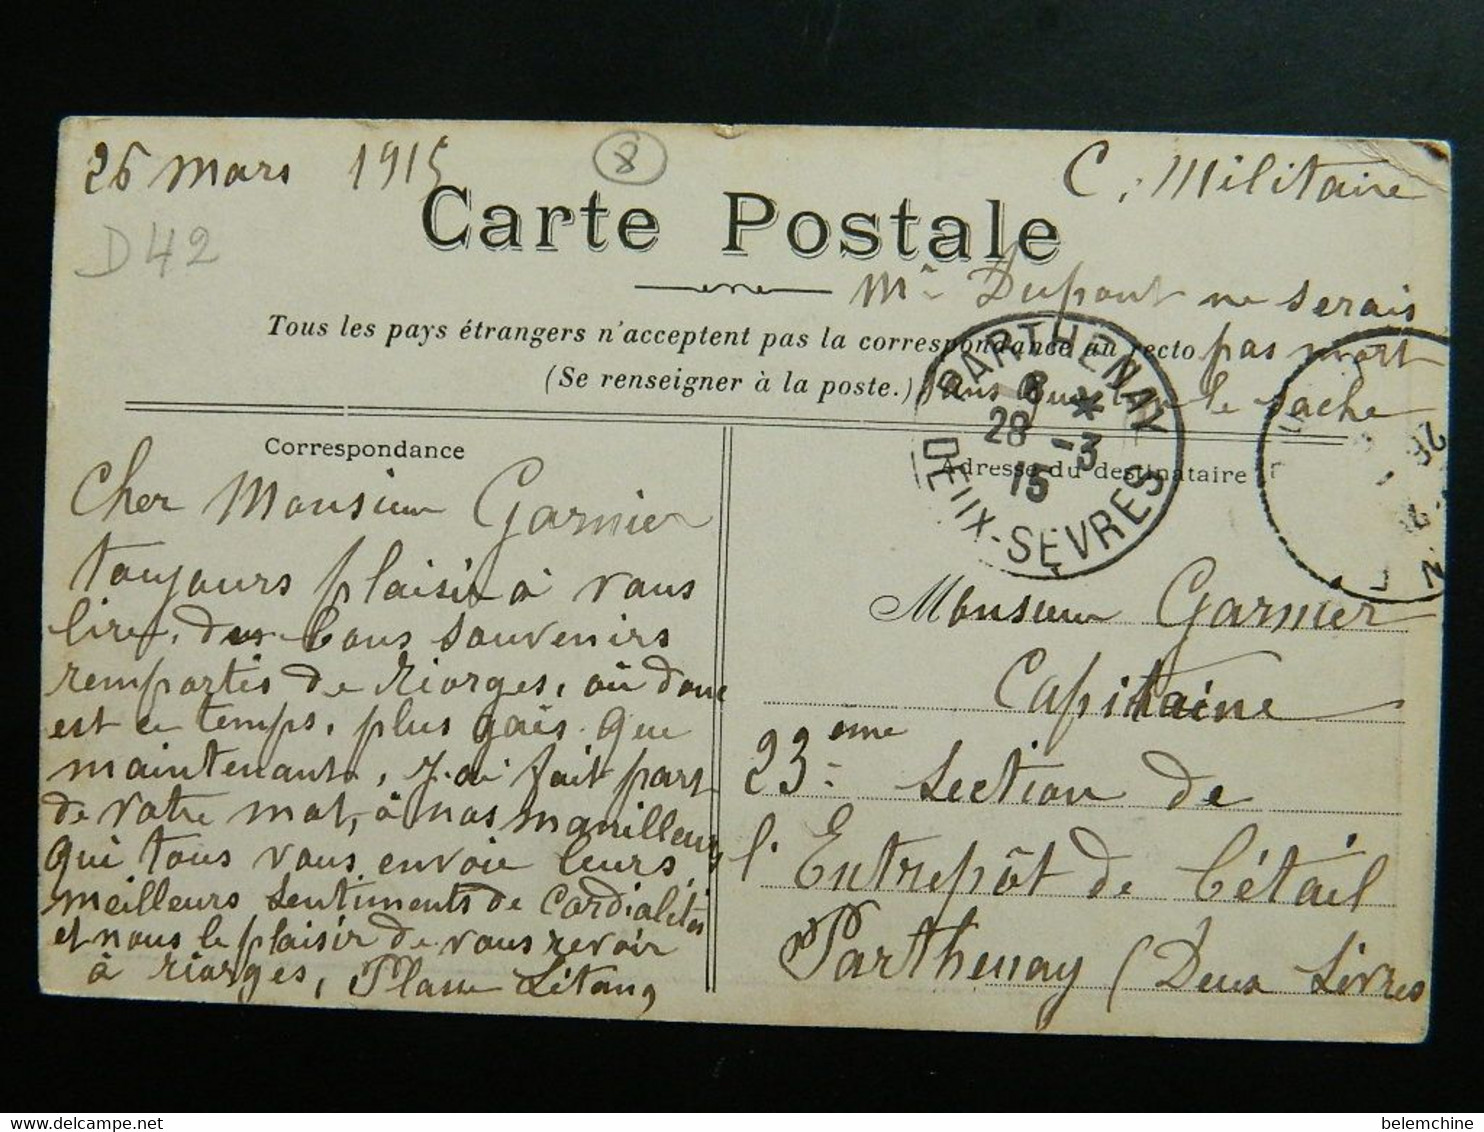 26 mars 1915
8
C. Militaire
D 42
Carte Postale
Mr Dupont ne serais
Tous les pays étrangers n'acceptent pas la correspondance au recto
pas mort
(Se renseigner à la poste.)
sans que le sache
PARTHENAY
8 *
28 -3
15
DEUX-SÈVRES
Correspondance
Adresse du destinataire
Cher Monsieur Garnier
toujours plaisir à vous
lire, des bons souvenirs
remportis de riorges, où donc
est ce temps, plus gais que
maintenant, J.ai fait part
de votre mot, à nos manilleurs
qui tous vous envoie leurs
meilleurs sentiments de cordialités
et nous le plaisir de vous revoir
à riorges,
Monsieur Garnier
Capitaine
23ème Section de
l'Entrepôt de bétail
Parthenay (Deux Sèvres
Delcampe.net
belemchine